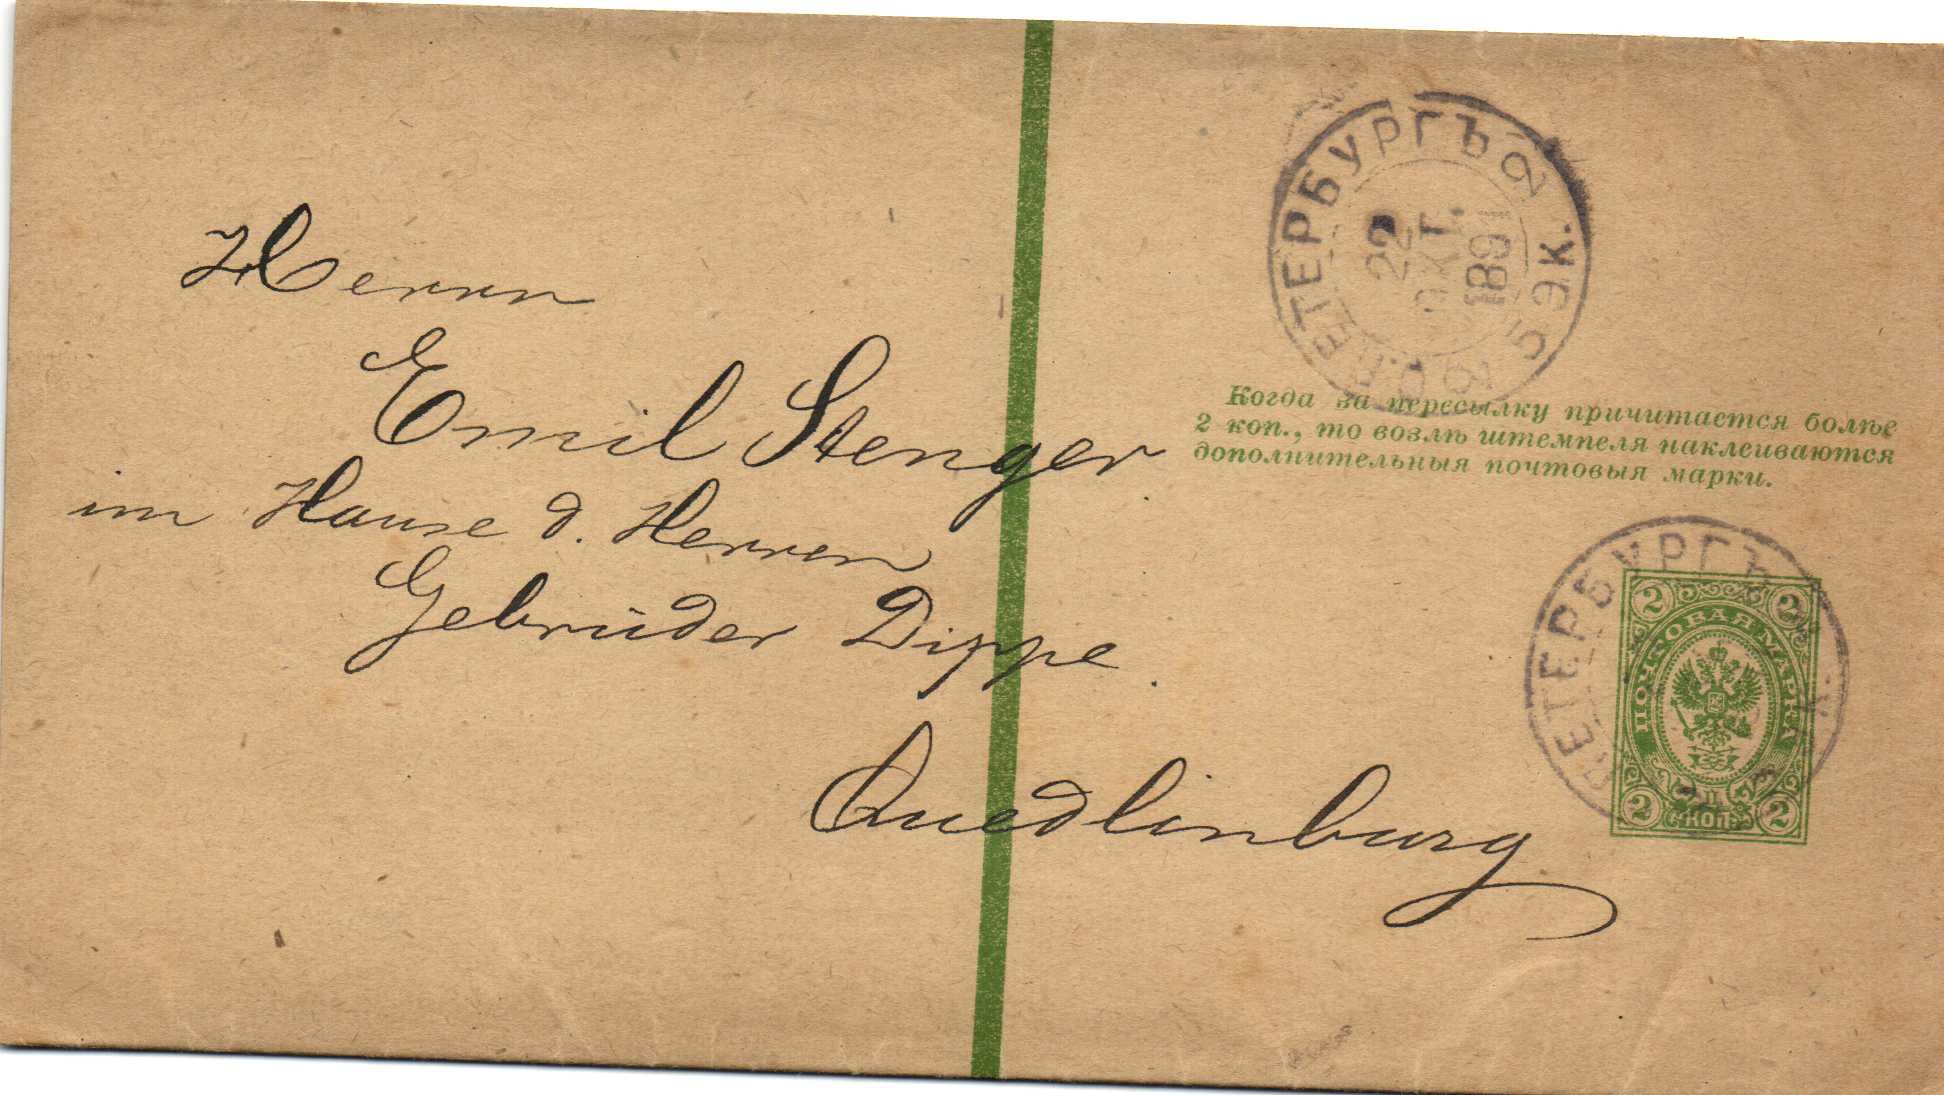 С.ПЕТЕРБУРГЪ 2
5 ЭК.
22
ОКТ.
1891
Когда за пересылку причитается болѣе
2 коп., то возлѣ штемпеля наклеиваются
дополнительныя почтовыя марки.
Herrn
Emil Stenger
im Hause d. Herren
Gebrüder Dippe.
Quedlinburg
ПЕТЕРБУРГЪ
2 2
ПОЧТОВАЯ МАРКА
2 КОП. 2